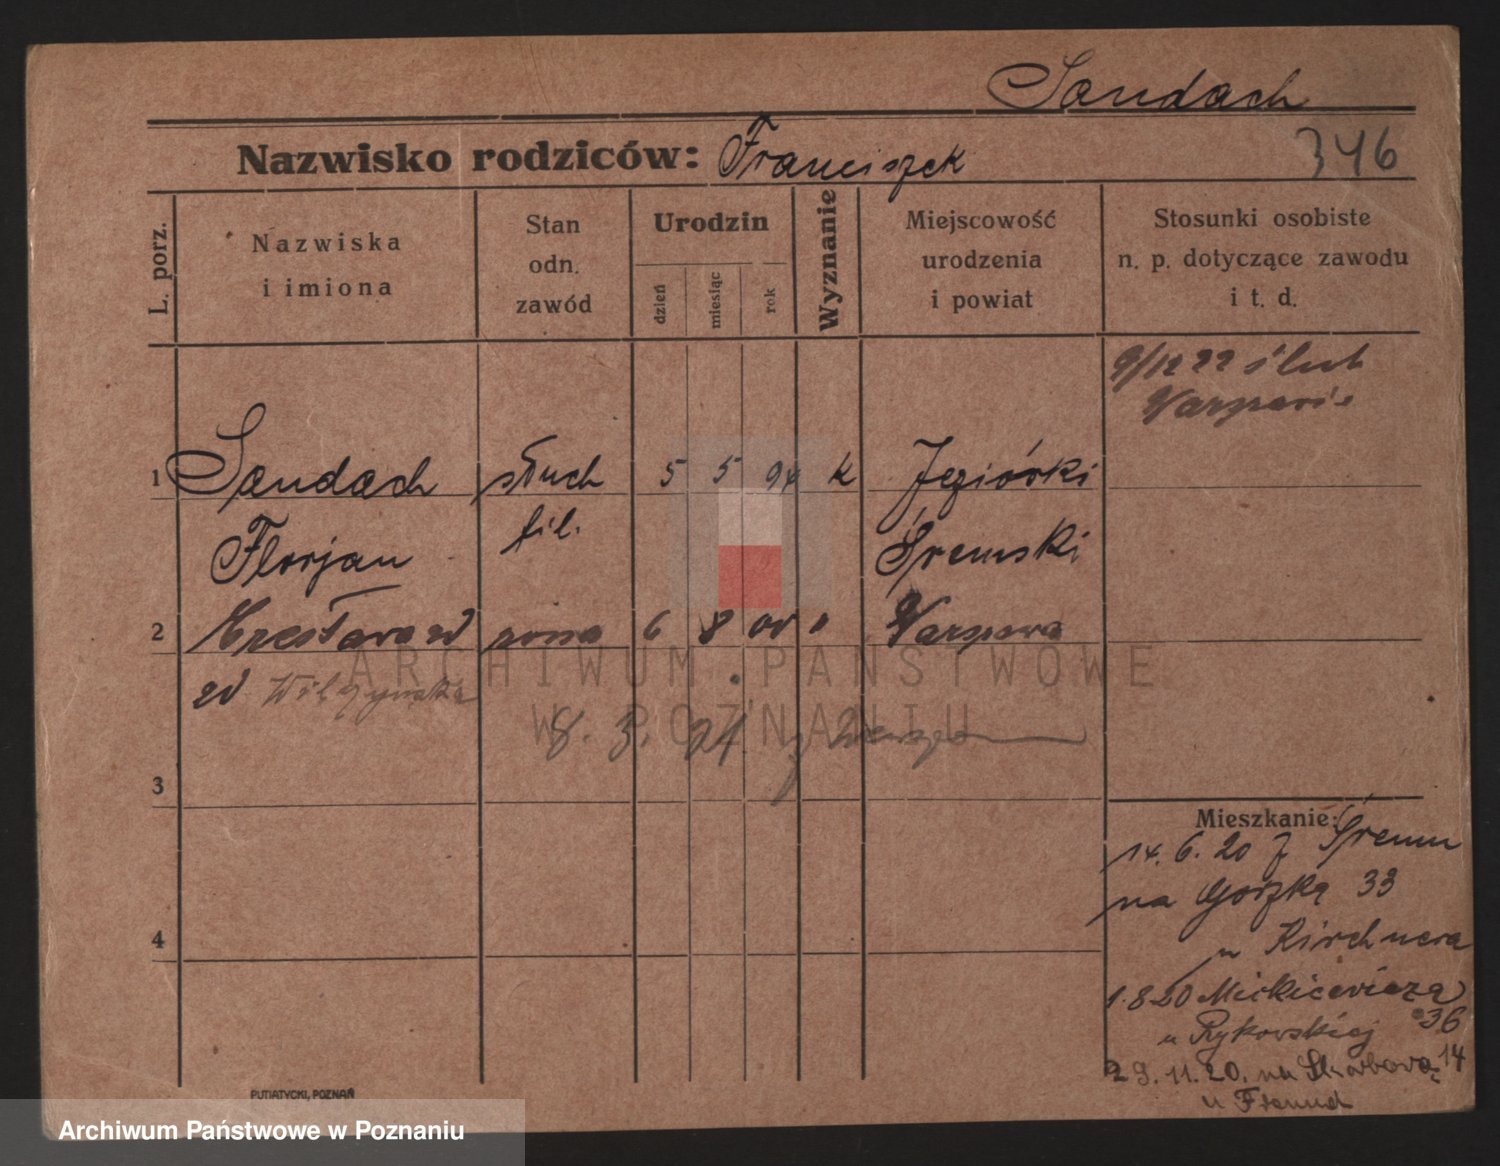 Sandach
Nazwisko rodziców: Franciszek 346
L. porz.
Nazwiska
i imiona
Stan
odn.
zawód
Urodzin
dzień
miesiąc
rok
Wyznanie
Miejscowość
urodzenia
i powiat
Stosunki osobiste
n. p. dotyczące zawodu
i t. d.
9/12 22 ślub
1 Sandach słuch 5 5 94 k Jeziórki
Florjan fil. Śremski
2 6 8 00 Warszawa
zd
8. 3. 21 z
3
4
Mieszkanie:
14. 6. 20 z Śremu
na Gorzką 33
u Kirchnera
1.8.20 Mickiewicza
36
u Rykowskiej
29.11.20. na Skarbową 14
u
PUTIATYCKI, POZNAŃ
ARCHIWUM PAŃSTWOWE
W POZNANIU
Archiwum Państwowe w Poznaniu